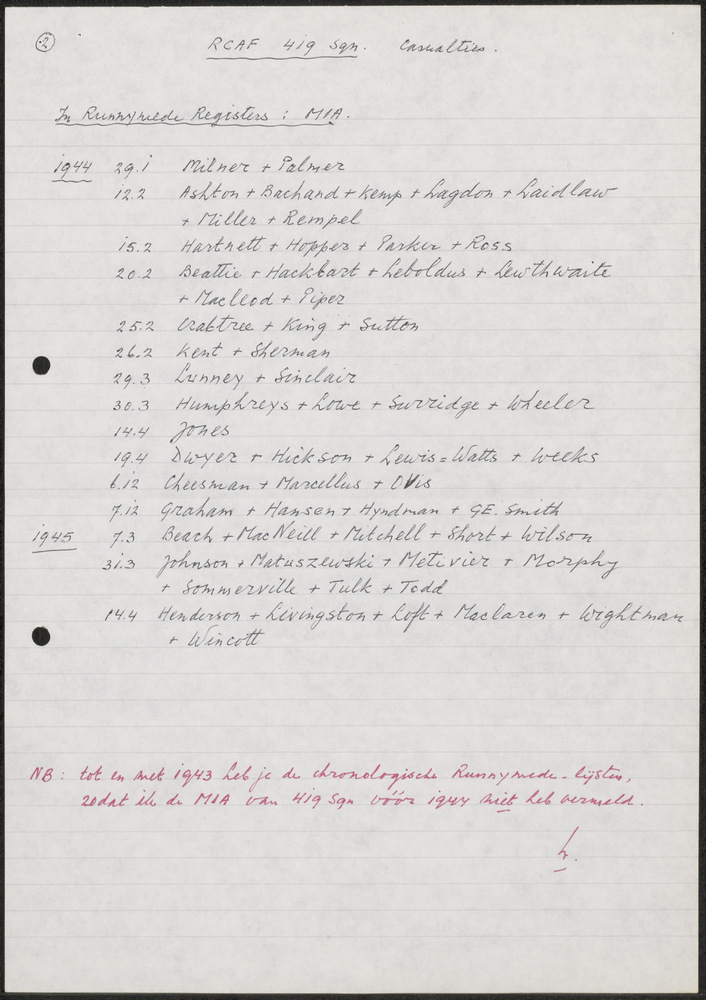 2
RCAF 419 Sqn. Casualties.
In Runnymede Registers : MIA.
1944 29.1 Milner + Palmer
12.2 Ashton + Bachand + Kemp + Lagdon + Laidlaw
+ Miller + Rempel
15.2 Hartnett + Hopper + Parker + Ross
20.2 Beattie + Hackbart + Leboldus + Lewthwaite
+ Macleod + Piper
25.2 Crabtree + King + Sutton
26.2 Kent + Sherman
29.3 Lunney + Sinclair
30.3 Humphreys + Lowe + Surridge + Wheeler
14.4 Jones
19.4 Dwyer + Hickson + Lewis=Watts + Weeks
6.12 Cheesman + Marcellus + Ovis
7.12 Graham + Hansen + Hyndman + GE. Smith
1945 7.3 Beach + MacNeill + Mitchell + Short + Wilson
31.3 Johnson + Matuszewski + Metivier + Morphy
+ Sommerville + Tulk + Todd
14.4 Henderson + Livingston + Loft + Maclaren + Wightman
+ Wincott
NB : tot en met 1943 heb je de chronologische Runnymede-lijsten,
zodat ik de MIA van 419 Sqn vóór 1944 niet heb vermeld.
h.